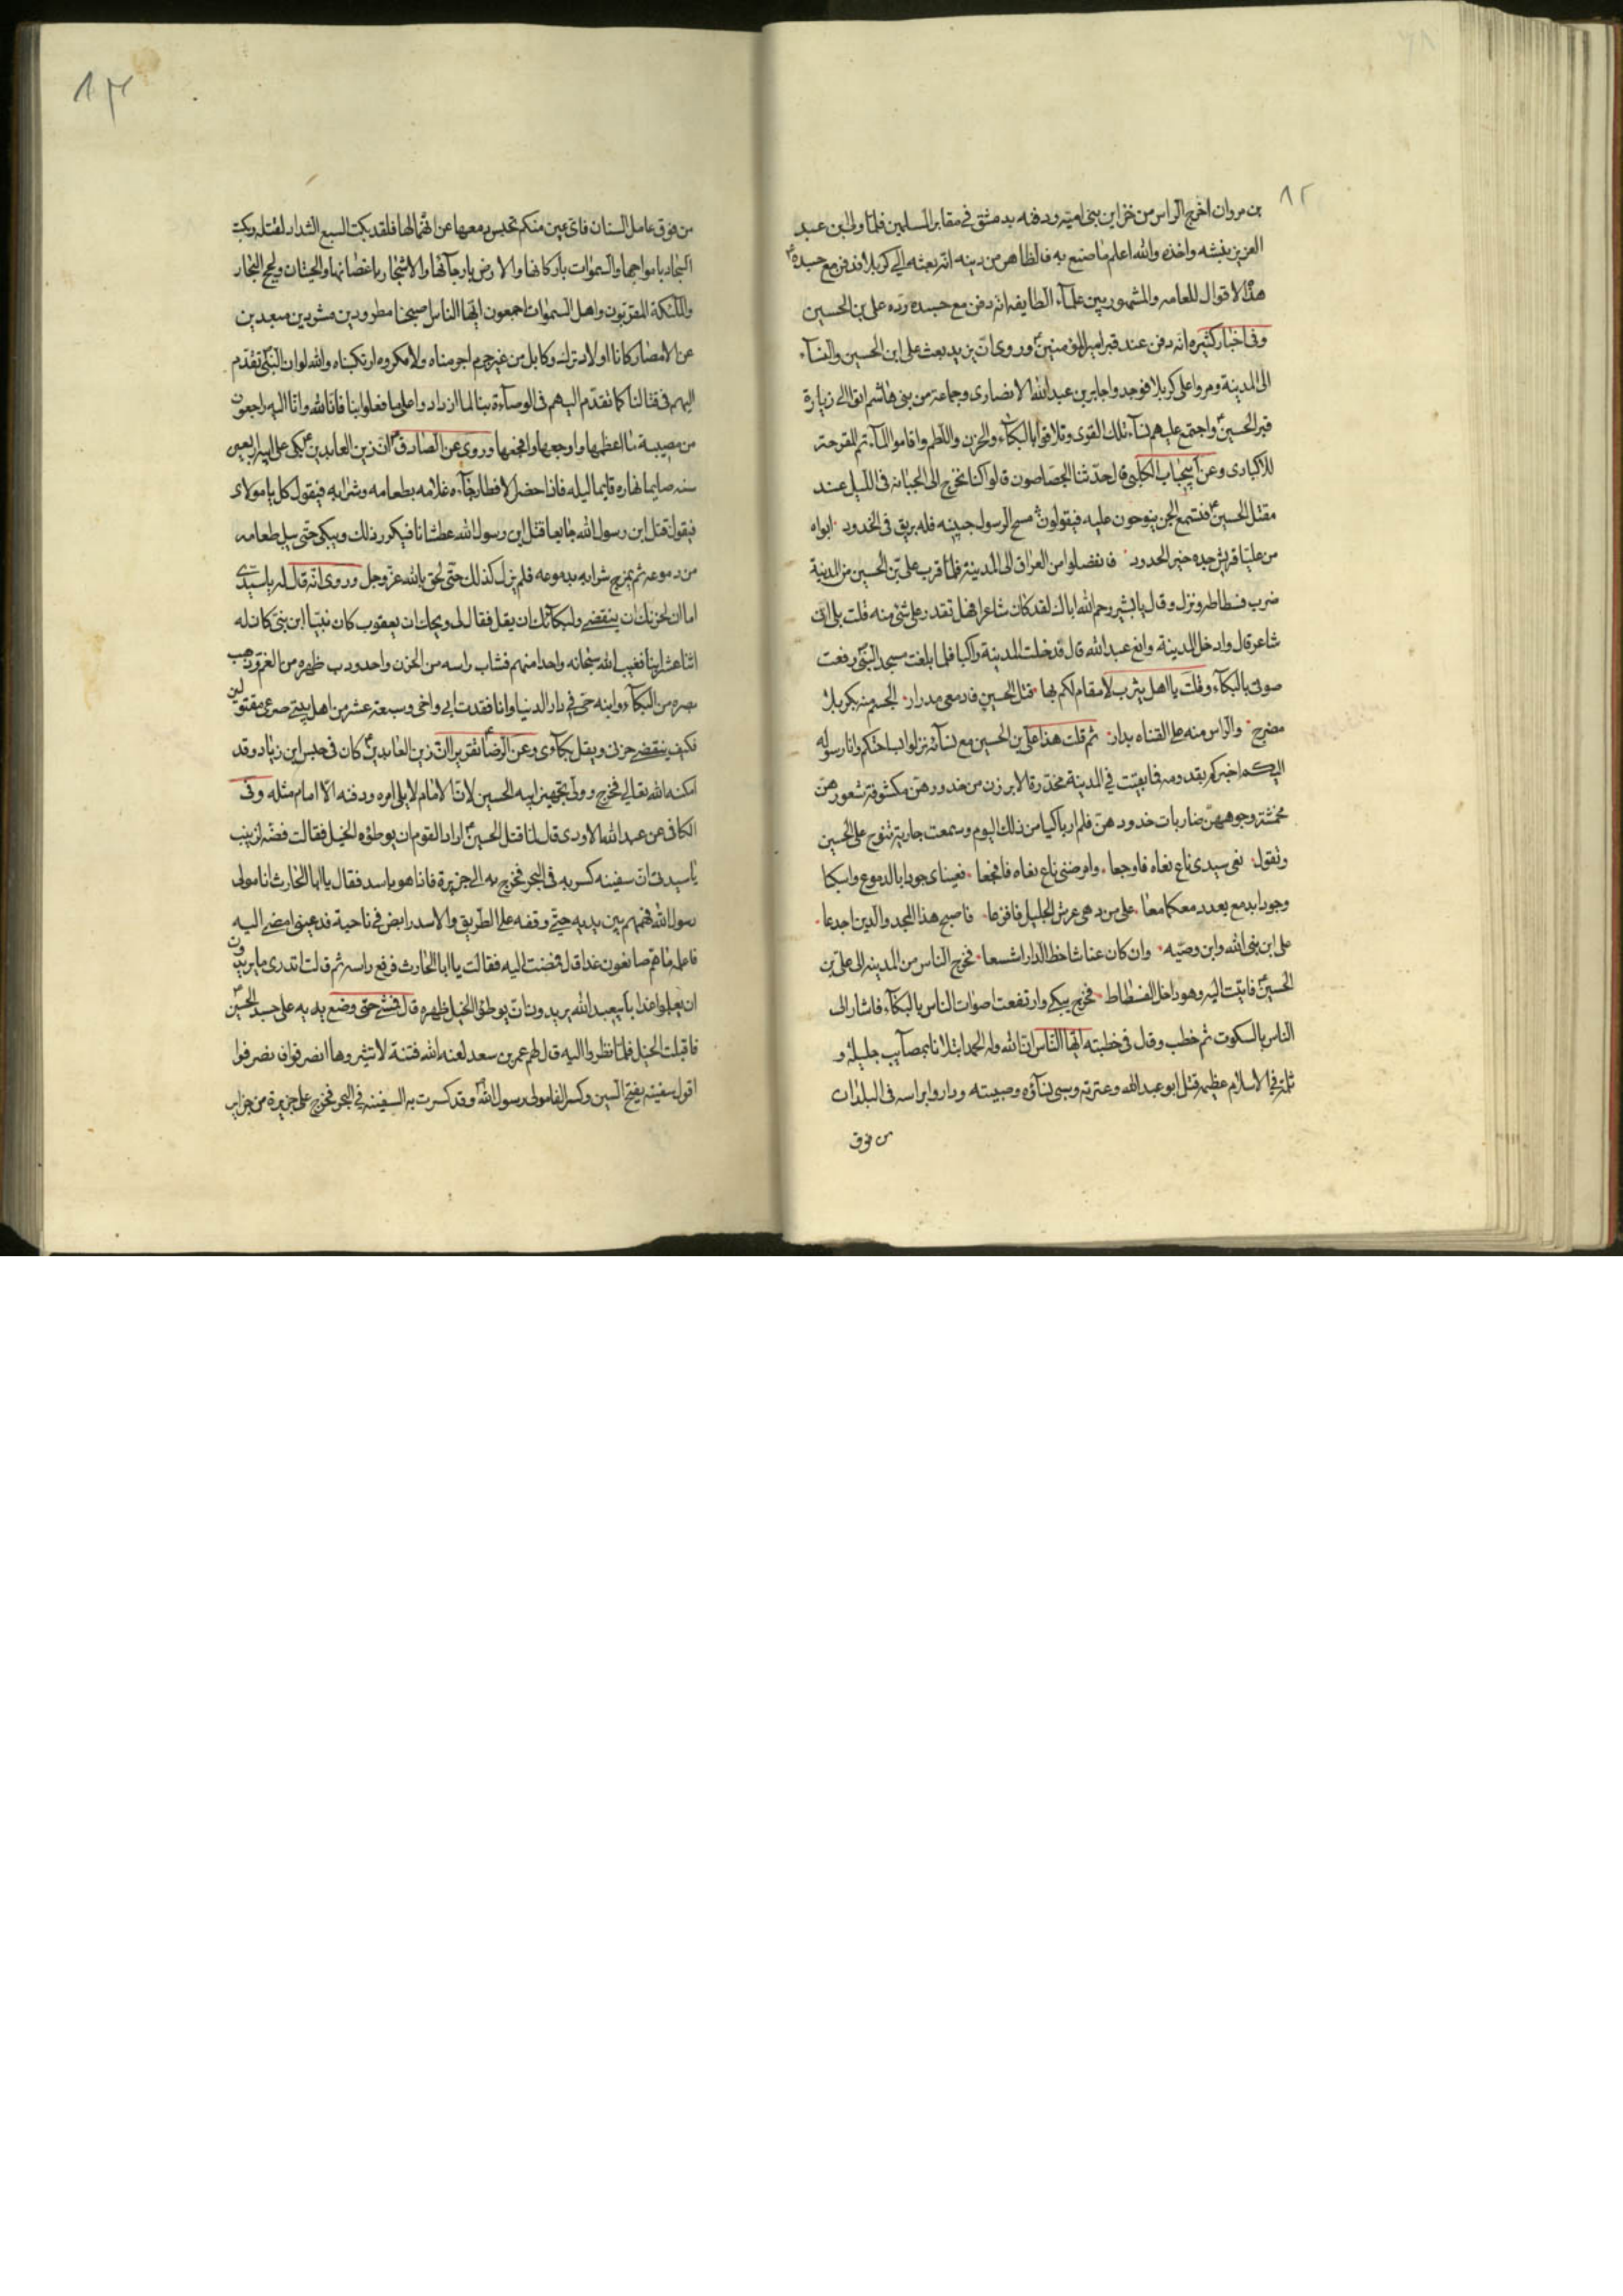 ٨٢
بن مروان اخرج الراس من خزاين بنى اميه ودفنه بدمشق فى مقابر المسلمين فلما ولى ابن عبد
العزيز نبشه واخذه والله اعلم ما صنع به فالظاهر من دينه انه بعثه الى كربلا فدفن مع جسده ع
هذا الاقوال للعامه والمشهور بين علماء الطايفه انه دفن مع جسده رده على بن الحسين
وفى اخبار كثيره انه دفن عند قبر امير المؤمنين ع وروى ان يزيد بعث على ابن الحسين والنساء
الى المدينة ومروا على كربلا فوجدوا جابر بن عبد الله الانصارى وجماعة من بنى هاشم اتوا الى زيارة
قبر الحسين ع واجتمع عليهم نساء تلك القرى وتلاقوا بالبكاء والحزن واللطم واقاموا المآتم المقرحة
للاكباد وعن ابى حباب الكلبى قال حدثنا الجصاصون قالوا كنا نخرج الى الجبانه فى الليل عند
مقتل الحسين ع فتسمع الجن ينوحون عليه فيقولون مسح الرسول جبينه فله بريق فى الخدود ابواه
من عليا قريش جده خير الجدود فانفصلوا من العراق الى المدينة فلما قرب على بن الحسين من المدينة
ضرب فسطاطه ونزل وقال يا بشير رحم الله اباك لقد كان شاعرا فهل تقدر على شئ منه قلت بلى انى
شاعر قال وادخل المدينة وانع عبد الله قال فدخلت المدينة راكبا فلما بلغت مسجد النبى رفعت
صوتى بالبكاء وقلت يا اهل يثرب لا مقام لكم بها قتل الحسين فادمعى مدرار الجسم منه بكربلا
مضرج والراس منه على القناه يدار ثم قلت هذا على بن الحسين مع نسائه نزلوا بساحتكم وانا رسوله
اليكم اخبركم بقدومه فما بقيت فى المدينة مخدرة الا برزن من خدورهن مكشوفة شعورهن
مخمشة وجوههن ضاربات خدودهن فلم ار باكيا من ذلك اليوم وسمعت جارية تنوح على الحسين
وتقول نعى سيدى ناع نعاه فاوجعا وامرضنى ناع نعاه فافجعا فعيناى جودا بالدموع واسكبا
وجودا بدمع بعد دمعكما معا على من دهى عرش الجليل فافزعا فاصبح هذا المجد والدين اجدعا
على ابن نبى الله وابن وصيه وان كان عنا شاخط الدار اشسعا فخرج الناس من المدينه الى على بن
الحسين ع فاتيت اليه وهو داخل الفسطاط فخرج يبكى وارتفعت اصوات الناس بالبكاء فاشار الى
الناس بالسكوت ثم خطب وقال فى خطبته ايها الناس ان الله وله الحمد ابتلانا بمصايب جليلة و
ثلمة فى الاسلام عظيمه قتل ابو عبد الله وعترته وسبى نساؤه وصبيته وداروا براسه فى البلدان
من فوق
٨٣
من فوق عامل السنان فاى عين منكم تحبس دمعها عن انهمالها فلقد بكت السبع الشداد لقتله وبكت
البحار بامواجها والسموات باركانها والارض بارجائها والاشجار باغصانها والحيتان ولجج البحار
والملئكة المقربون واهل السموات اجمعون ايها الناس اصبحنا مطرودين مشردين مبعدين
عن الامصار كانا اولاد ترك وكابل من غير جرم اجرمناه ولا مكروه ارتكبناه والله لو ان النبى تقدم
اليهم فى قتالنا كما تقدم اليهم فى الوصاءة بنا لما ازداد واعلى ما فعلوا بنا فانا لله وانا اليه راجعون
من مصيبة ما اعظمها واوجعها وافجعها وروى عن الصادق ع ان زين العابدين ع بكى على ابيه اربعين
سنه صايما نهاره قايما ليله فاذا حضر الافطار جاءه غلامه بطعامه وشرابه فيقول كل يا مولاى
فيقول قتل ابن رسول الله جايعا قتل ابن رسول الله عطشانا فيكرر ذلك ويبكى حتى يبل طعامه
من دموعه ثم يمزج شرابه بدموعه فلم يزل كذلك حتى لحق بالله عز وجل وروى انه قال له يا سيدى
اما ان لحزنك ان ينقضى ولبكائك ان يقل فقال لى ويحك ان يعقوب كان نبيا ابن نبى كان له
اثنا عشر ابنا فغيب الله سبحانه واحدا منهم فشاب راسه من الحزن واحدودب ظهره من الغم وذهب
بصره من البكاء وابنه حى فى دار الدنيا وانا فقدت ابى واخى وسبعة عشر من اهل بيتى صرعى مقتولين
فكيف ينقضى حزنى ويقل بكاؤى وعن الرضا ع تقريرا ان زين العابدين ع كان فى حبس ابن زياد وقد
امكنه الله تعالى فخرج وولى تجهيز ابيه الحسين لان الامام لا يلى امره ودفنه الا امام مثله وفى
الكافى عن عبد الله الاودى قال لما قتل الحسين ع اراد القوم ان يوطؤه الخيل فقالت فضه لزينب
يا سيدتى ان سفينه كسر به فى البحر فخرج به الى جزيرة فاذا هو باسد فقال يا ابا الحارث انا مولى
رسول الله فهمهم بين يديه حتى وقفه على الطريق والاسد رابض فى ناحية فدعينى امضى اليه
فاعلمه ما هم صانعون غدا قال فمضت اليه فقالت يا ابا الحارث فرفع راسه ثم قالت اتدرى ما يريدون
ان يعملوا غدا بابى عبد الله يريدون ان يوطؤا الخيل ظهره قال فمشى حتى وضع يديه على جسد الحسين ع
فاقبلت الخيل فلما نظروا اليه قال لهم عمر بن سعد لعنه الله فتنة لا تثيروها انصرفوا فانصرفوا
اقول سفينة بفتح السين وكسر الفا مولى رسول الله وقد كسرت به السفينه فى البحر فخرج على جزيرة من جزاير